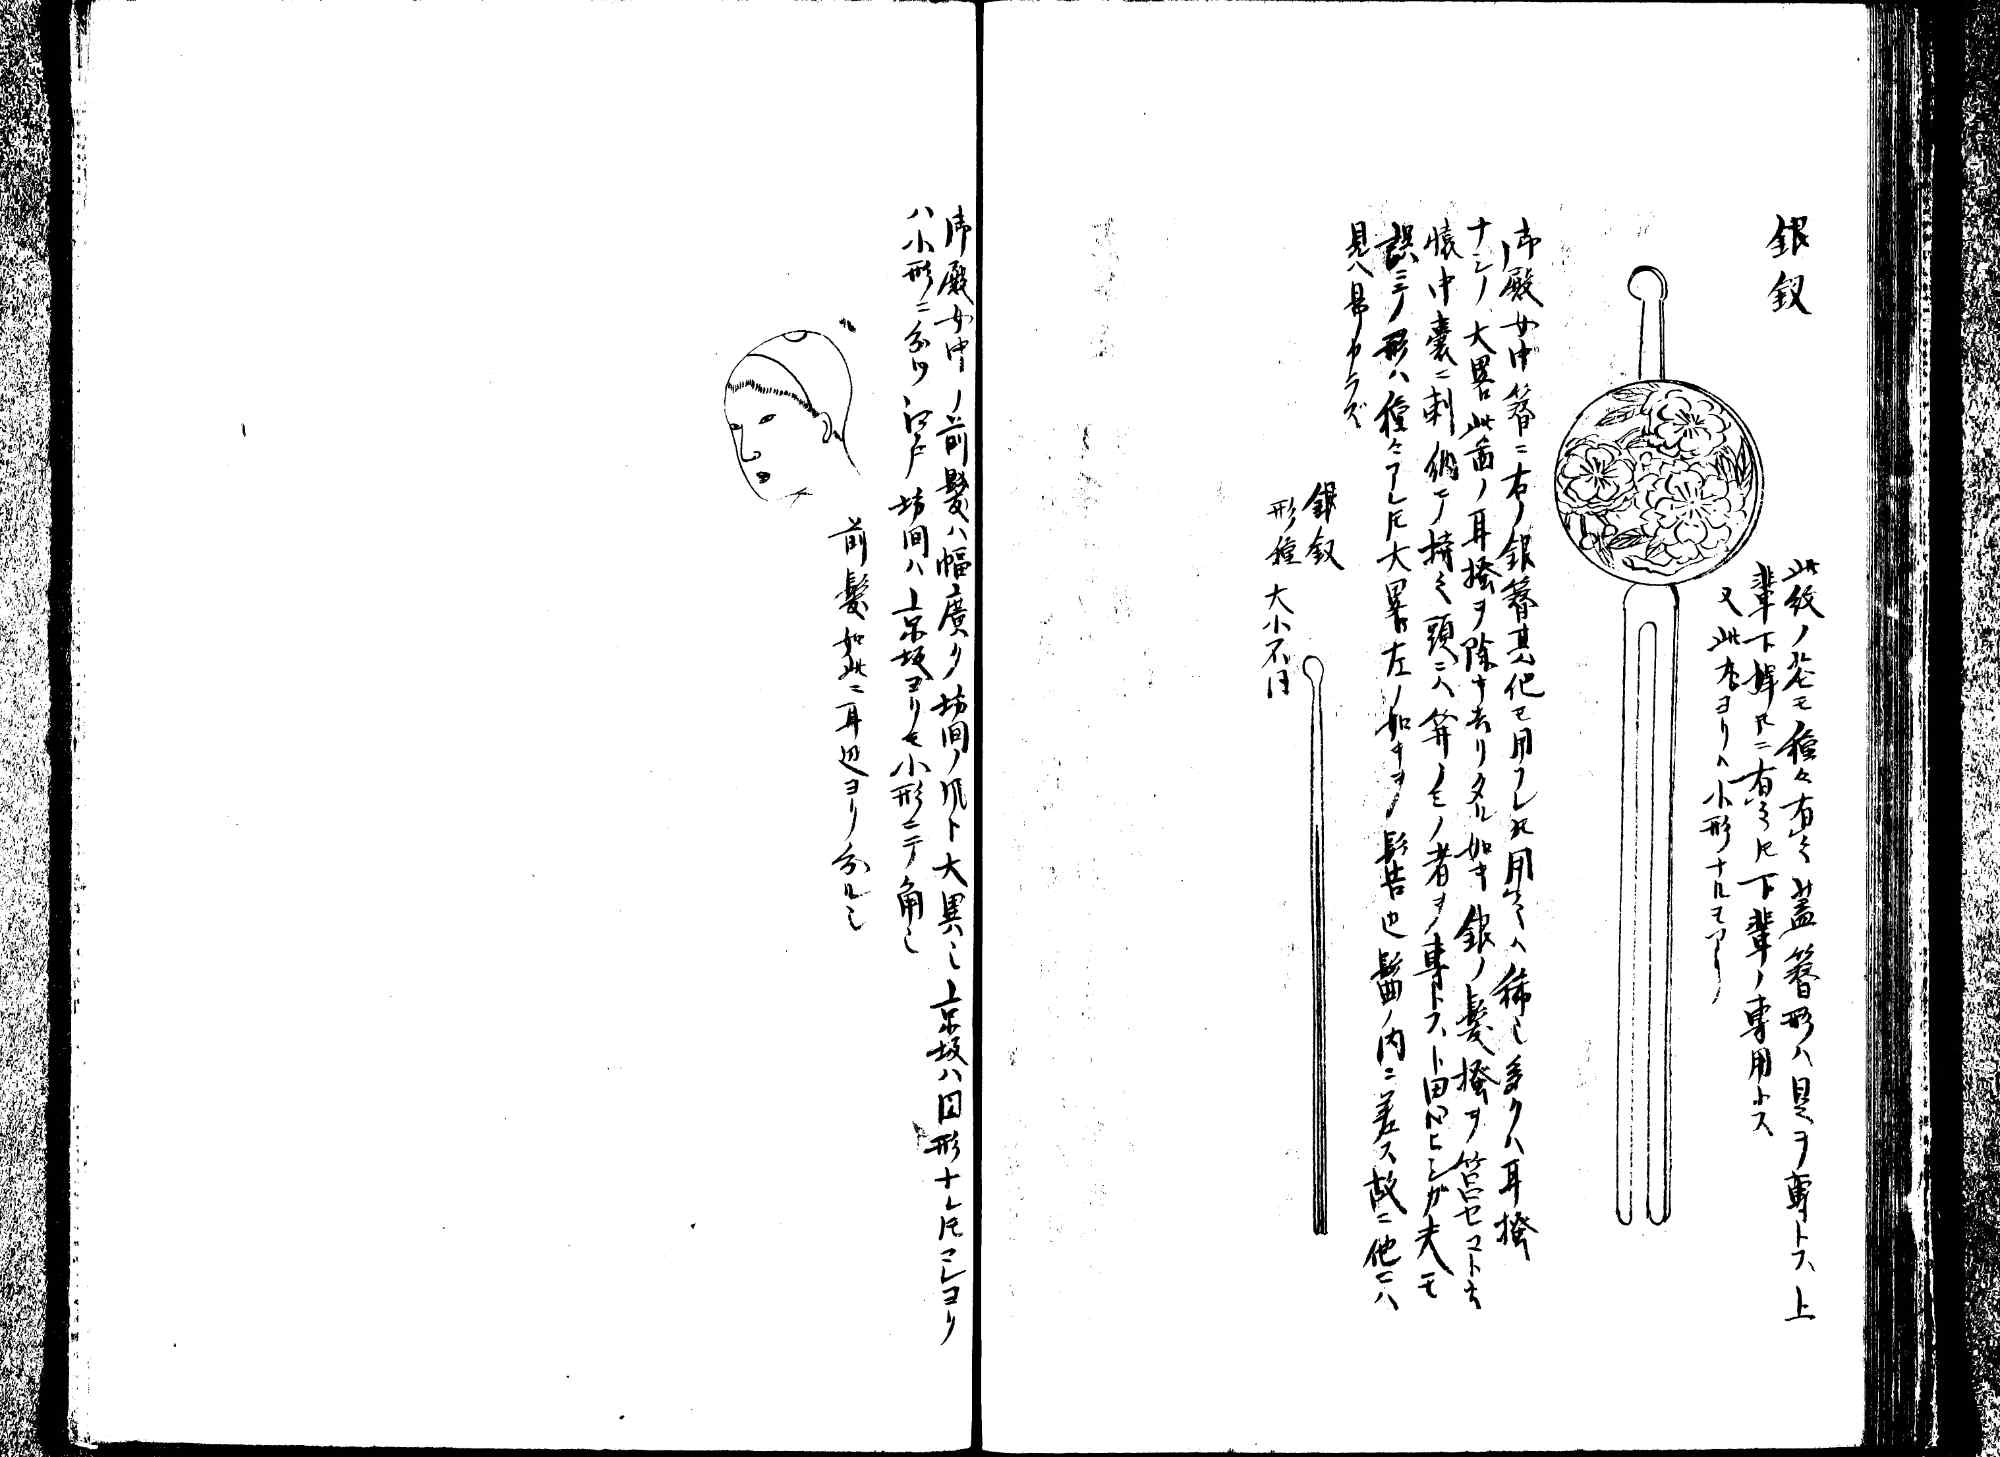 銀釵
此紋ノ花モ種々有之蓋簪形ハ是ヲ専トス上
輩下婢トモニ有之トモ下輩ノ専用トス
又此大ヨリハ小形ナルモアリ
御殿女中簪ニ右ノ銀簪其他モ用フレトモ用之ハ稀也多クハ耳掻
ナシノ大畧此図ノ耳掻ヲ除キ去リタル如キ銀ノ髪掻ヲ筥セコト云
懐中嚢ニ刺納テ持之頭ニハ笄ノモノ者ヲ専トスト思ヒシガ夫モ
誤ニテノ形ハ種々アレトモ大畧左ノ如キヲ也髷ノ内ニ差ス故ニ他ニハ
見ヘ易カラズ
銀釵
形種大小不同
御殿女中ノ前髪ハ幅広ク坊間ノ風ト大異也京坂ハ因形ナレトモコレヨリ
ハ小形ニ分ツ江戸坊間ハ京坂ヨリモ小形ニテ角也
前髪如此ニ耳辺ヨリ分ル也